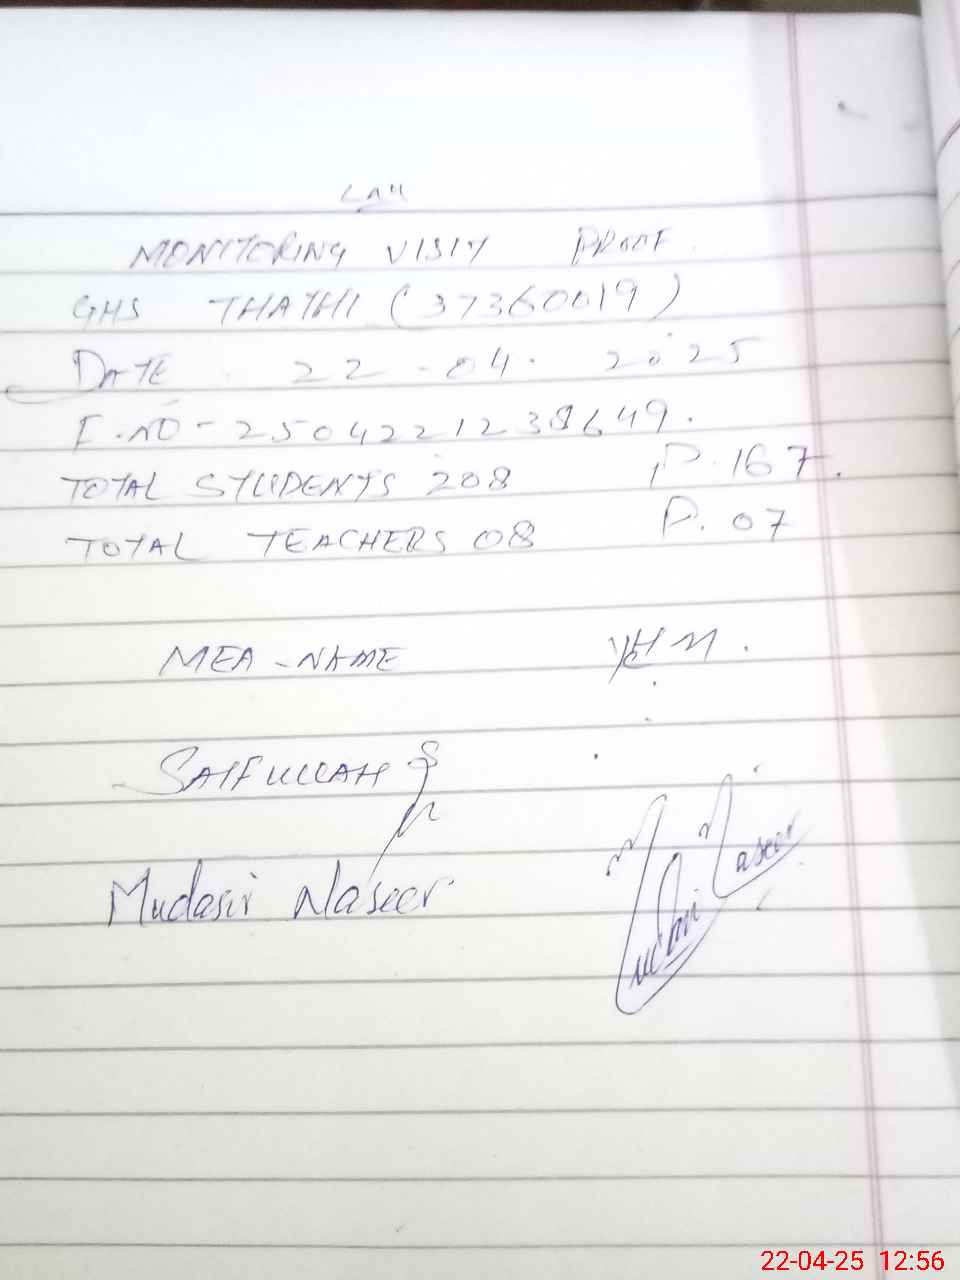 MONITORING VISIT PROOF
GHS THATHI (37360019)
DATE 22-04-2025
F.NO-2504221238649.
TOTAL STUDENTS 208 P.167.
TOTAL TEACHERS 08 P.07
MEA-NAME HM.
SAIFULLAH
Mudasir Naseer
Mudasir Naseer
22-04-25 12:56